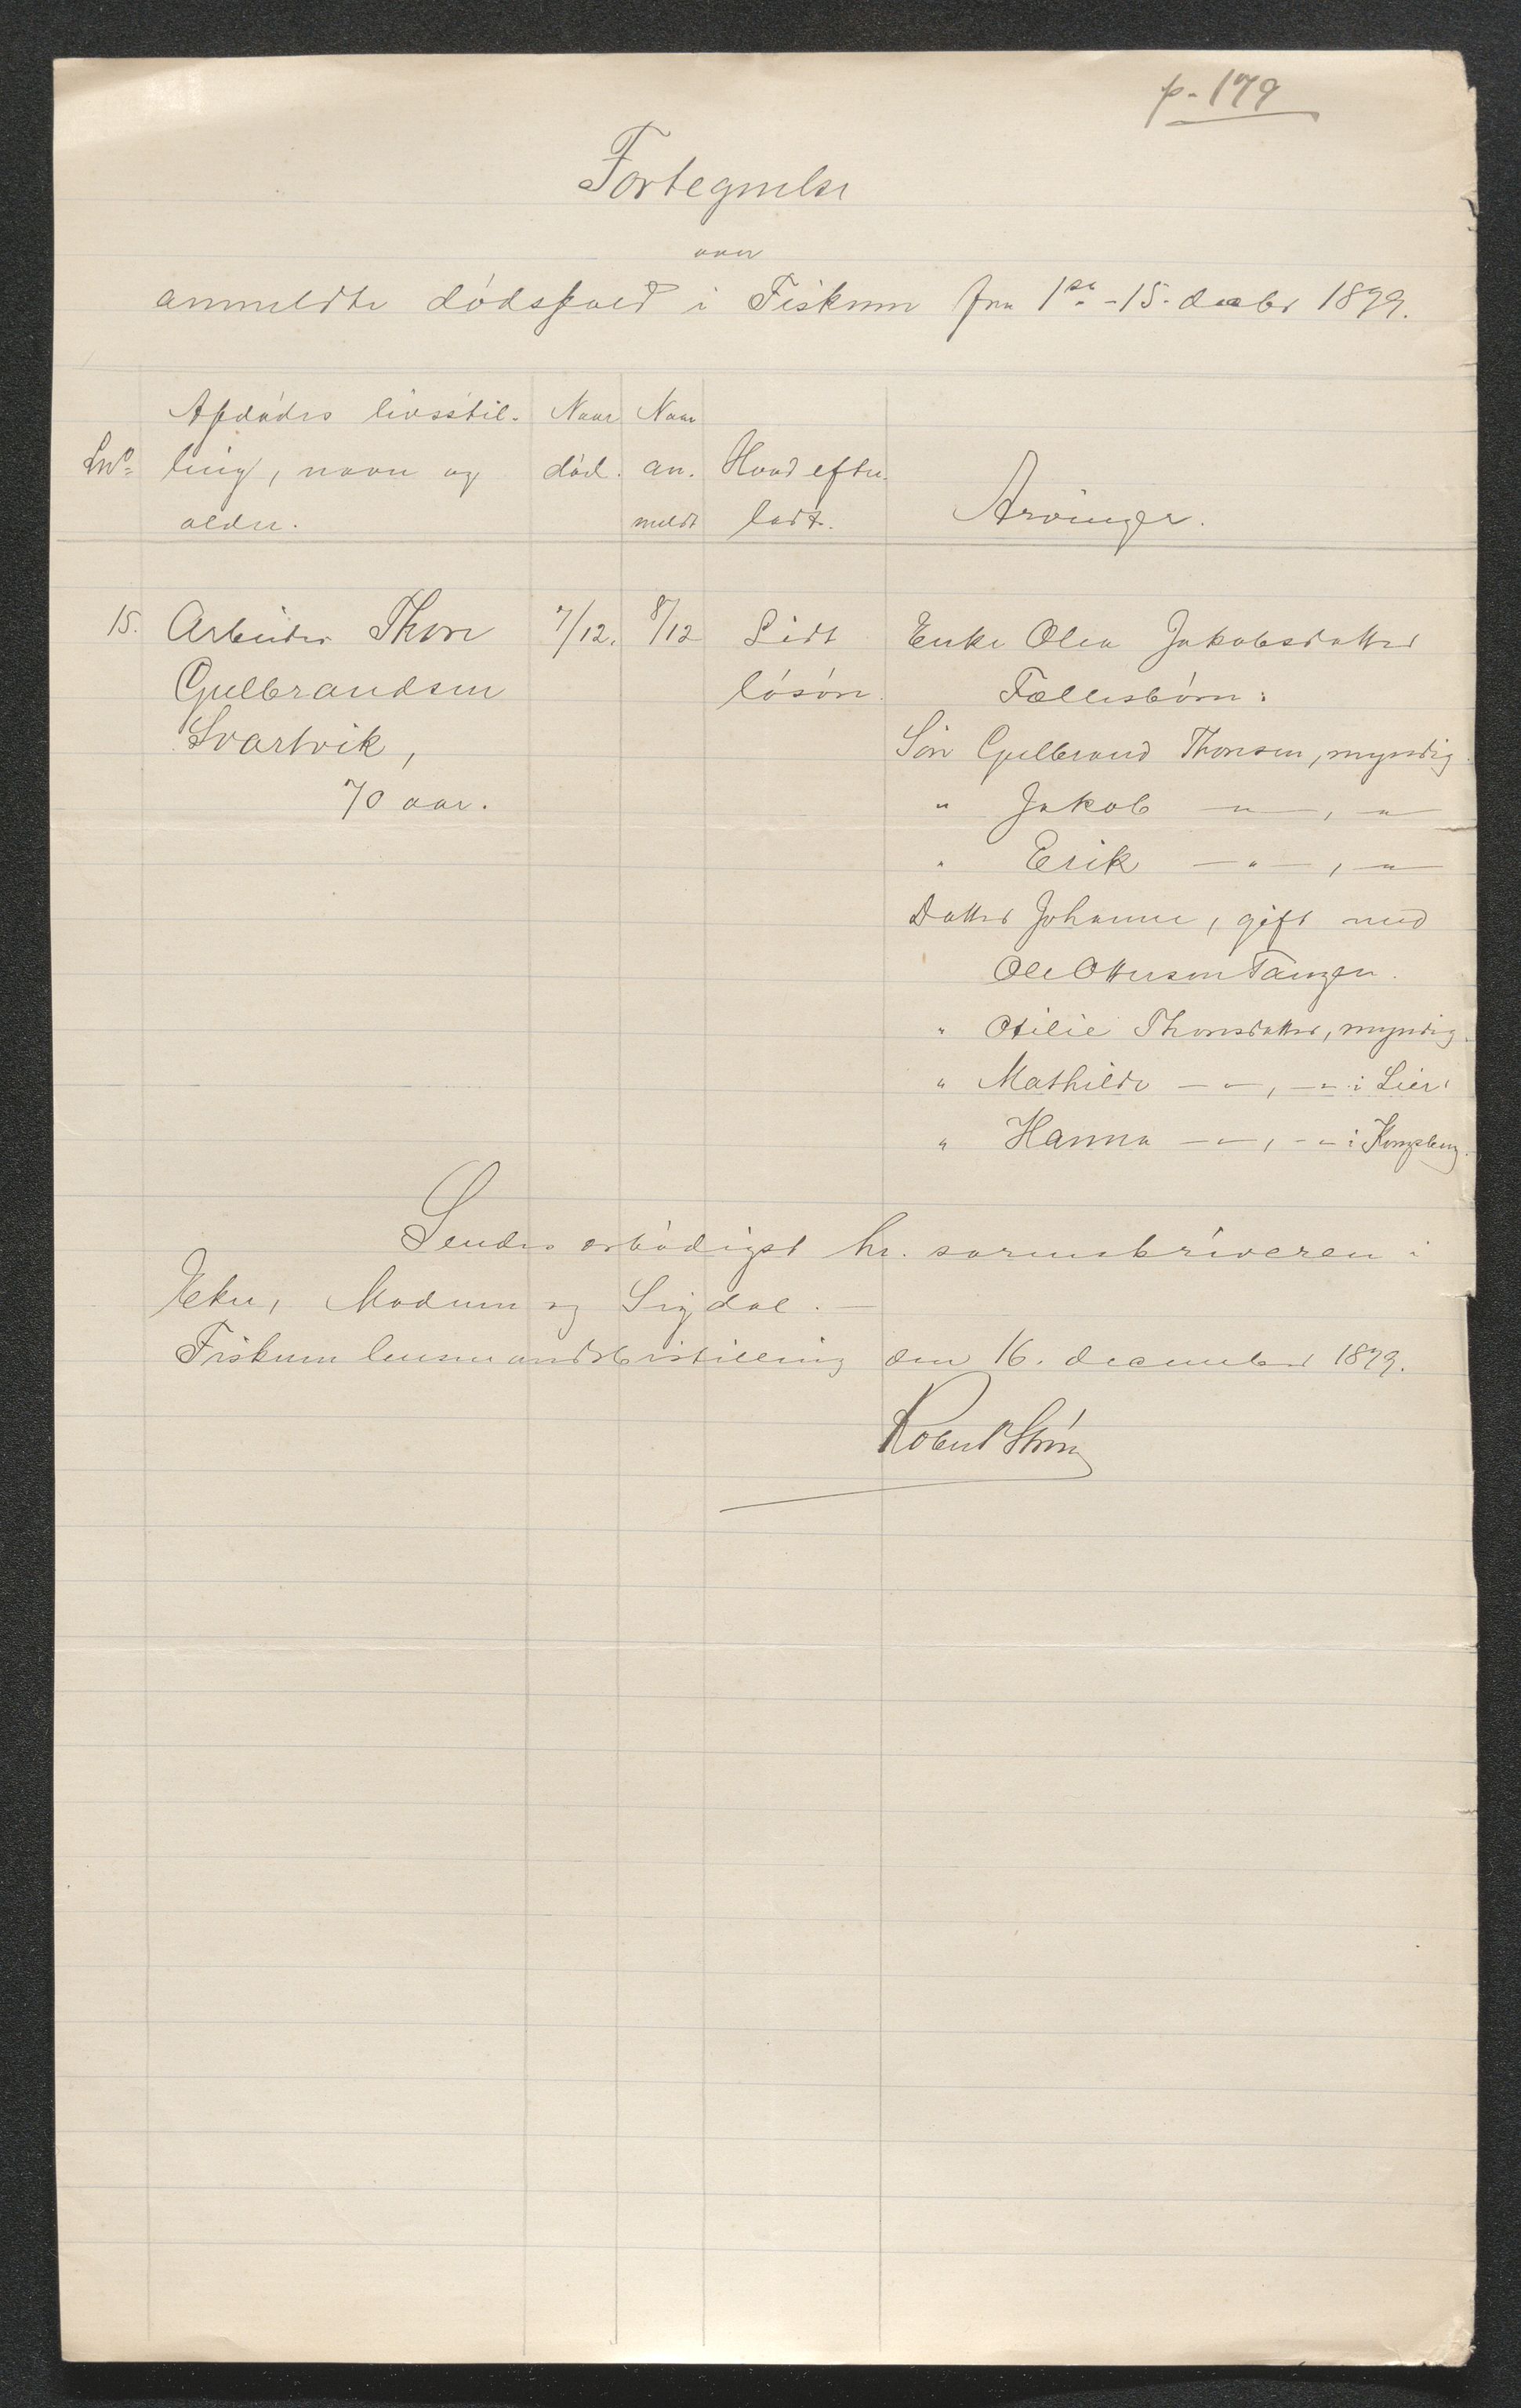 p. 179
Fortegnelse
over
anmeldte dødsfald i Fiskum fra 1ste - 15. decbr 1899.
Afdødes livsstil- Naar Naar
Lno ling, navn og død. an- Hvad efter-
alder. meldt ladt. Arvinger.
15. Arbeider Thore 7/12. 8/12 Lidt Enke Olea Jakobsdatter
Gulbrandsen løsøre. Fællesbørn:
Svartvik, Søn Gulbrand Thoresen, myndig
70 aar. " Jakob — " —, — " —
" Erik — " —, — " —
Datter Johanne, gift med
Ole Ottersen Tangen.
" Otilie Thoresdatter, myndig.
" Mathilde — " —, — " — i Lier.
" Hanna — " —, — " — i Kongsberg.
Sendes ærbødigst hr. sorenskriveren i
Eker, Modum og Sigdal. —
Fiskum lensmandsbestilling den 16. december 1899.
Robert Strøm